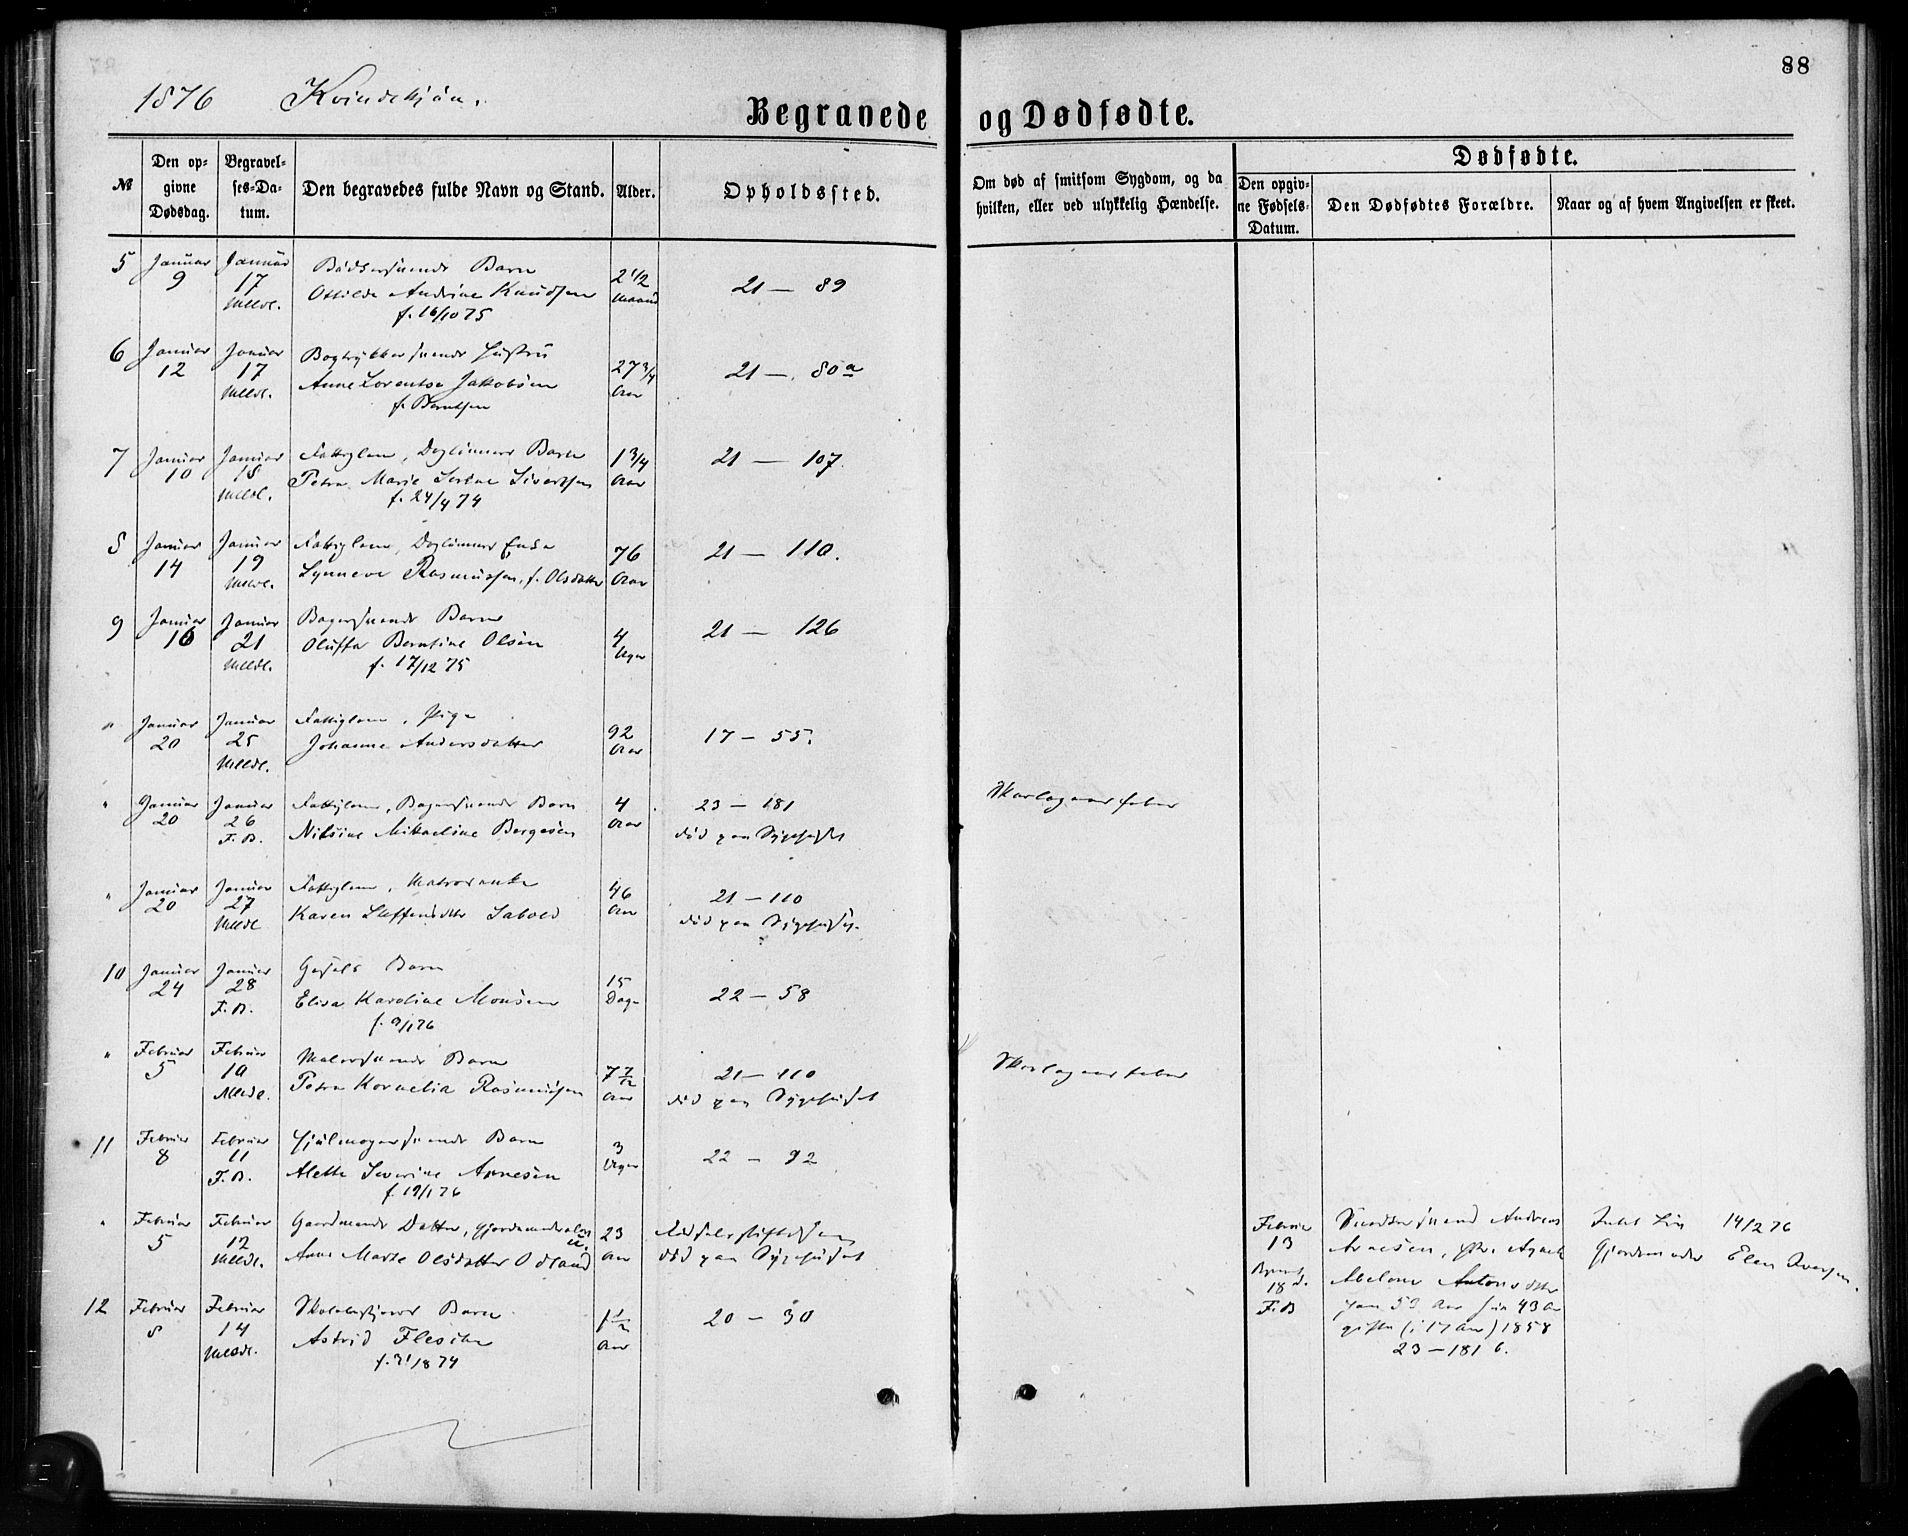 88
1876 Kvindekjøn.
Begravede og Dødfødte.
№
Den op-
givne
Dødsdag.
Begravel-
ses-Da-
tum.
Den begravedes fulde Navn og Stand.
Alder.
Opholdssted.
Om død af smitsom Sygdom, og da
hvilken, eller ved ulykkelig Hændelse.
Dødfødte.
Den opgiv-
ne Fødsels-
Datum.
Den Dødfødtes Forældre.
Naar og af hvem Angivelsen er skeet.
5 Januar 9 Januar 17 Barn 2 1/2 21 — 89
Andrine Knudsen
f. 16/10 75
6 Januar 12 Januar 17 Bogtrykkersvends Hustru 27 3/4 Aar 21 — 80a
Anne Lorentse Jakobsen
f. Berntsen
7 Januar 10 Januar 18 Fattiglem, Dagleiners Barn 1 3/4 Aar 21 — 107.
Petra Marie Serine Sivertsen
f. 24/4 74
8 Januar 14 Januar 19 Fattiglem, Dagleiners Enke 76 Aar 21 — 110.
Synneve Rasmussen, f. Olsdatter
9 Januar 16 Januar 21 Bagersvends Barn 4 Uger 21 — 126
Oluffa Berntine Olsen
f. 17/12 75
" Januar 20 Januar 25 Fattiglem, Pige 92 Aar 17 — 55.
Johanne Andersdatter
" Januar 20 Januar 26 F.B. Fattiglem, Bagersvends Barn 4 Aar 23 — 181 Skarlagensfeber
Mikaeline Børgesen død paa Sygehuset
" Januar 20 Januar 27 Fattiglem, Matrosenke 46 Aar 21 — 110
Karen Steffensdtr død paa Sygehuset.
10 Januar 24 Januar 28 F.B. Gesels Barn 15 Dage 22 — 58
Elisa Karoline Monsen
f. 9/1 76
" Februar 5 Februar 10 Malersvends Barn 7 7/12 Aar 21 — 110 Skarlagensfeber
Petra Kornelia Rasmussen død paa Sygehuset
11 Februar 8 Februar 11 F.B. Hjulmagersvends Barn 3 Uger 22 — 92
Alette Severine Arnesen
f. 19/1 76
" Februar 5 Februar 12 Gaardmands Datter, 23 Aar Fødselsstiftelsen
Anne Marte Olsdatter Odland død paa Sygehuset
12 Februar 8 Februar 14 Skolebestyrers Barn 1 1/2 Aar 20 — 30
Astrid Flesche
f. 31/8 74
Februar 13 Andreas
Arnesen,
18 d. Abelone Antonsdtr
F.B 53 Aar hun 43 Aar
gifte (i 17 Aar) 1858
23 — 181 b.
14/2 76
Gjordemoder Elen Iversen